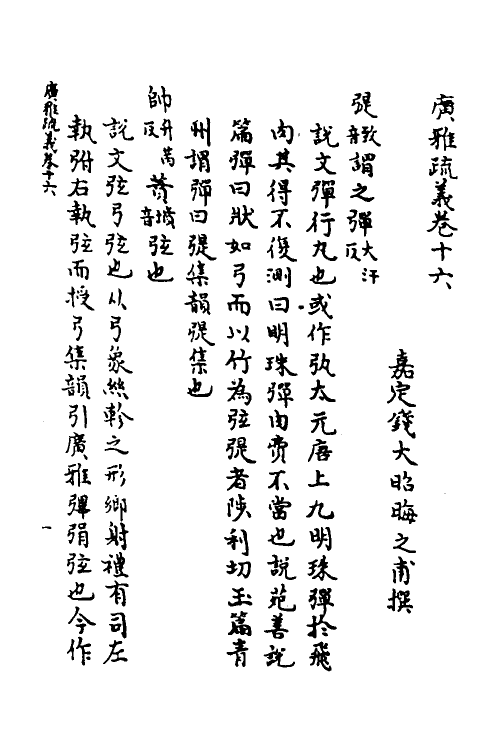 廣雅疏義卷十六
嘉定錢大昭晦之甫撰
弫音致謂之彈大汗反
說文彈行丸也或作𢎫太元唐上九明珠彈於飛
肉其得不復測曰明珠彈肉費不當也說苑善說
篇彈曰狀如弓而以竹為弦弫者陟利切玉篇青
州謂彈曰弫集韻弫集也
帥升萬反音弦也
說文弦弓弦也从弓象絲軫之形鄉射禮有司左
執弣右執弦而授弓集韻引廣雅彃弲弦也今作
廣雅疏義卷十六
一